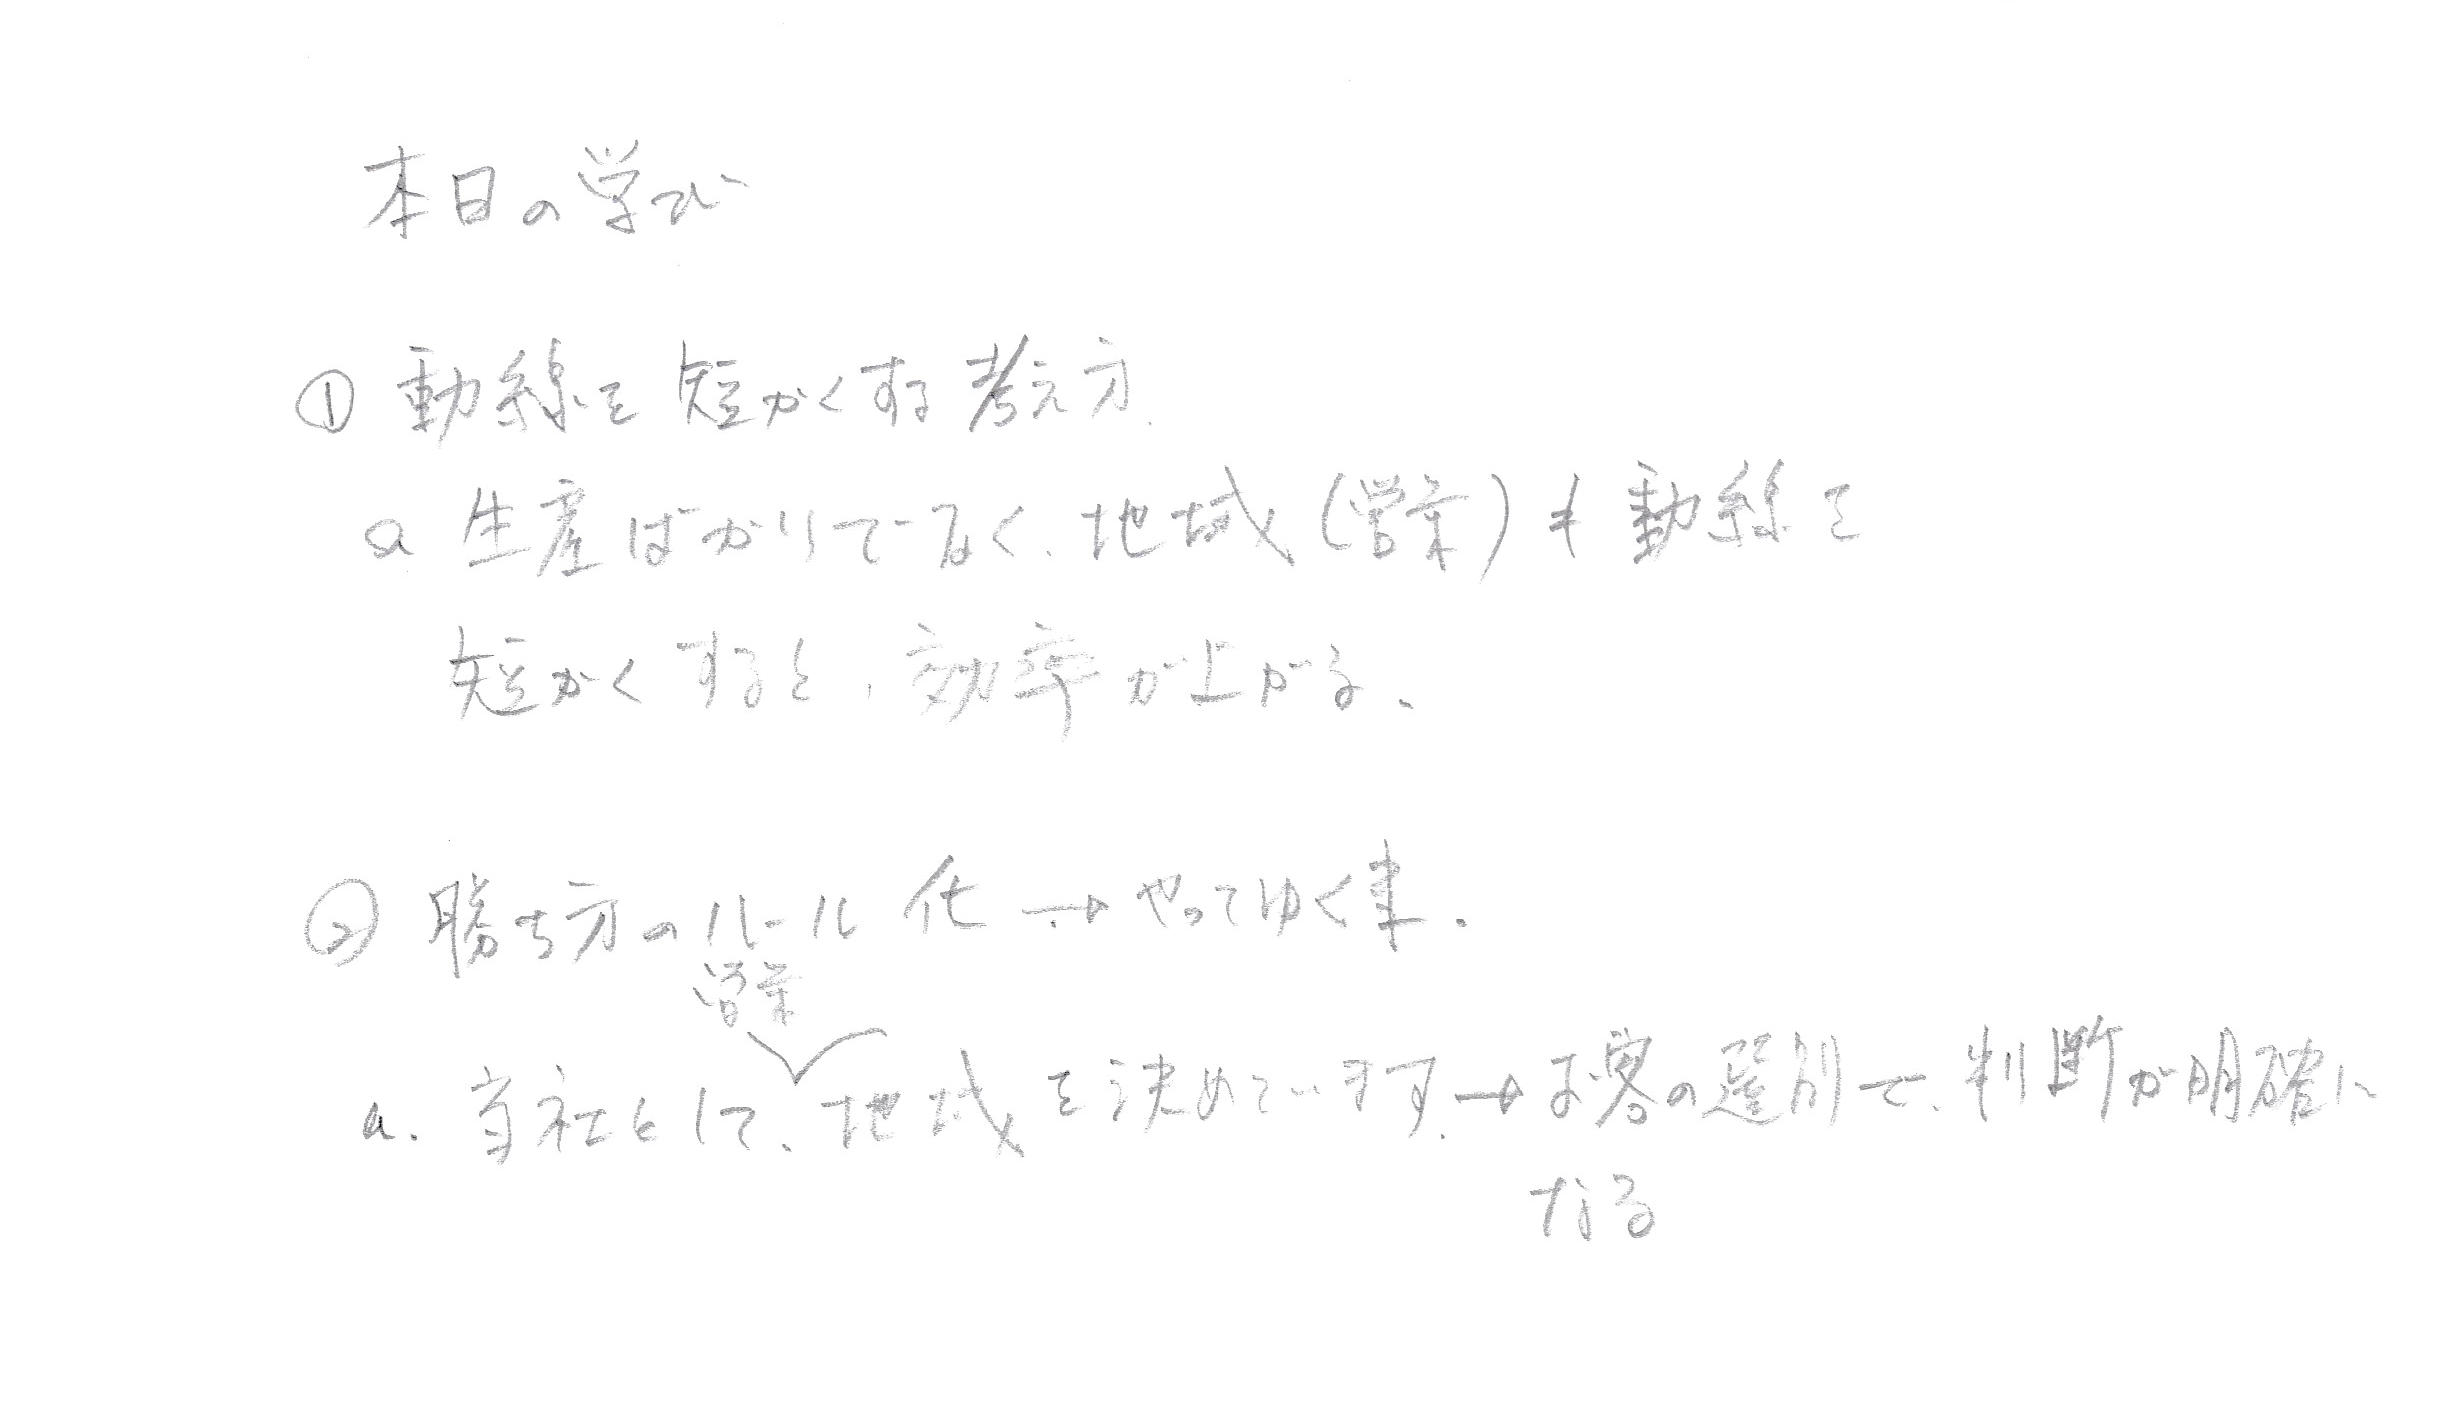 本日の学び
① 動線を短かくする考え方.
a 生産ばかりでなく、地域(営業)も動線を
短かくすると、効率が上がる、
② 勝ち方のルール化 → やってゆく事.
営業
a. 当社として、地域を決めています. → お客の選別で、判断が明確に
なる